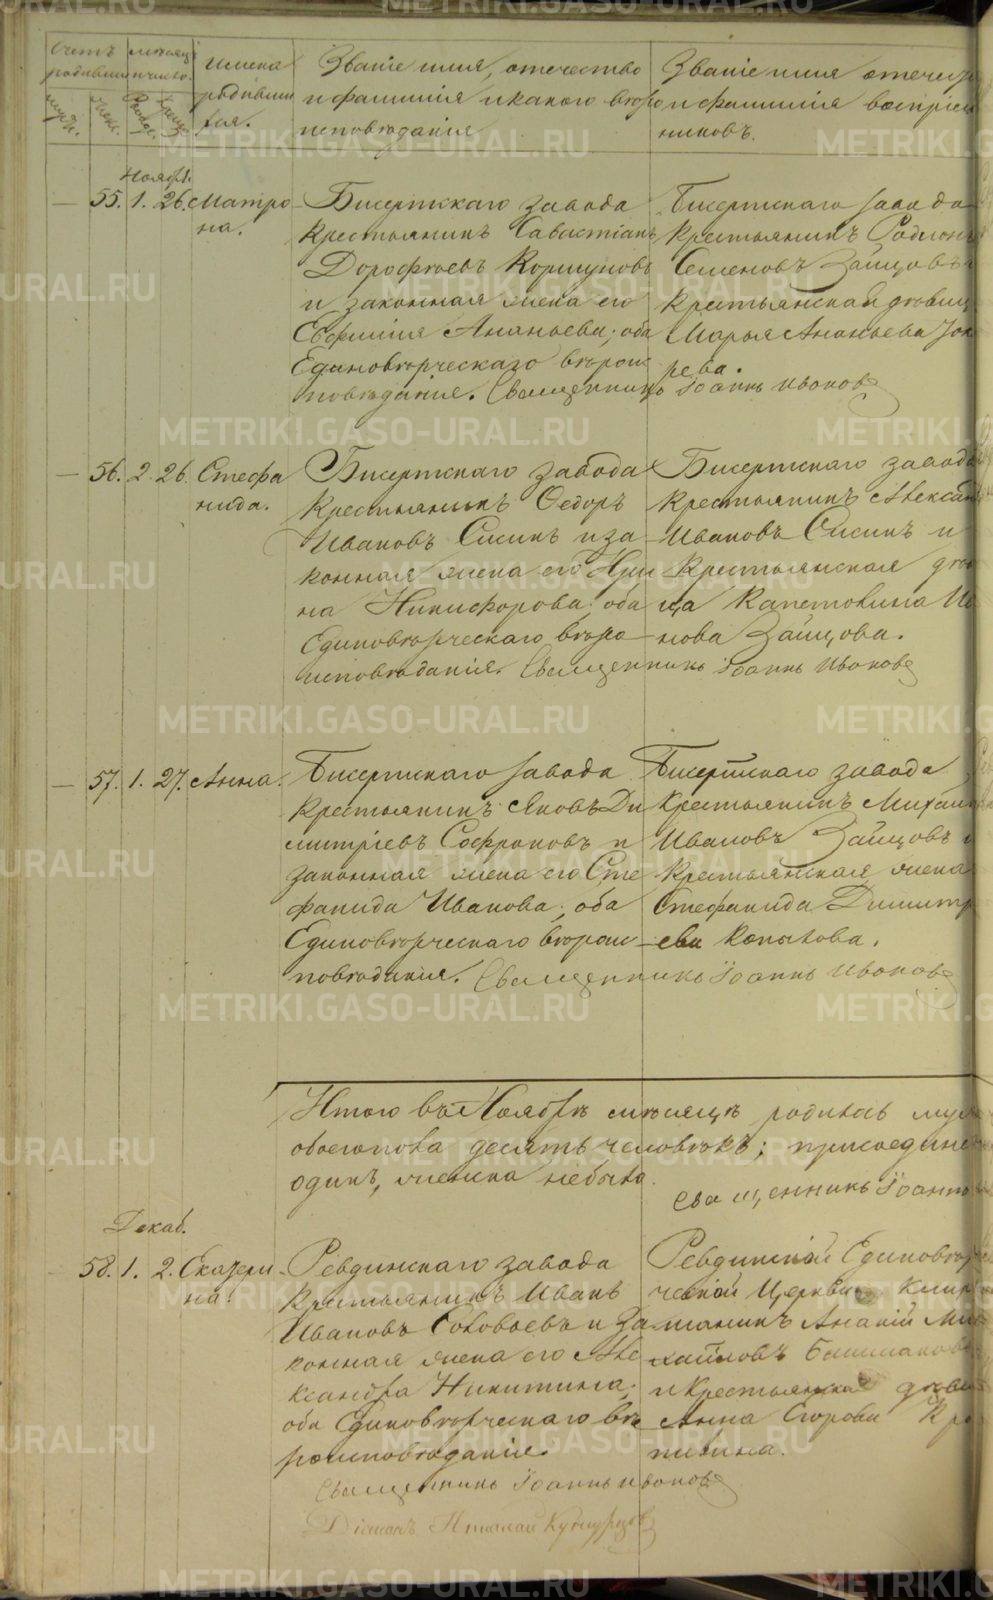 Счетъ родившихся
мѣсяцъ и число
имена родивши
хся.
Званіе имя, отечество
и фамилія и какого вѣро
исповѣданія
Званіе имя отечест
и фамилія воспріем
никовъ.
Ноябр.
— 55. 1. 26. Матро
на.
Бисертскаго завода
крестьянинъ Савастіанъ
Дорофѣевъ Коршуновъ
и законная жена его
Евфимія Ананьева; оба
Единовѣрческаго вѣроис
повѣданія. Священникъ Іоаннъ Ивановъ
Бисертскаго завода
крестьянинъ Родіонъ
Семеновъ Зайцовъ и
крестьянская дѣвиц
Марья Ананьева
рева.
— 56. 2. 26. Стефа
нида.
Бисертскаго завода
крестьянинъ Ѳедоръ
Ивановъ Сисинъ и за
конная жена его Ири
на Никифорова; оба
Единовѣрческаго вѣро
исповѣданія. Священникъ Іоаннъ Ивановъ
Бисертскаго завода
крестьянинъ Алексан
Ивановъ Сисинъ и
крестьянская дѣв
ца Капетолина Ив
нова Зайцова.
— 57. 1. 27. Анна.
Бисертскаго завода
крестьянинъ Яковъ Ди
митріевъ Софроновъ и
законная жена его Сте
фанида Иванова; оба
Единовѣрческаго вѣроис
повѣданія. Священникъ Іоаннъ Ивановъ
Бисертскаго завода
крестьянинъ Михаил
Ивановъ Зайцовъ и
крестьянская жена
Стефанида Димитр
ева Копылова.
Итого въ Ноябрѣ мѣсяцѣ родилось муж
обоегопола десять человѣкъ; присоедине
одинъ, женска небыло.
Священникъ Іоаннъ
Декаб.
— 58. 1. 2. Екатери
на.
Ревдинскаго завода
крестьянинъ Иванъ
Ивановъ Соловьевъ и за
конная жена его Але
ксандра Никитина;
оба Единовѣрческаго вѣ
роисповѣданія.
Священникъ Іоаннъ Ивановъ
Ревдинской Единовѣр
ческой Церкви
Ананій Ми
хайловъ Башмаковъ
и крестьянская дѣви
Анна Егорова Кро
пивина.
METRIKI.GASO-URAL.RU